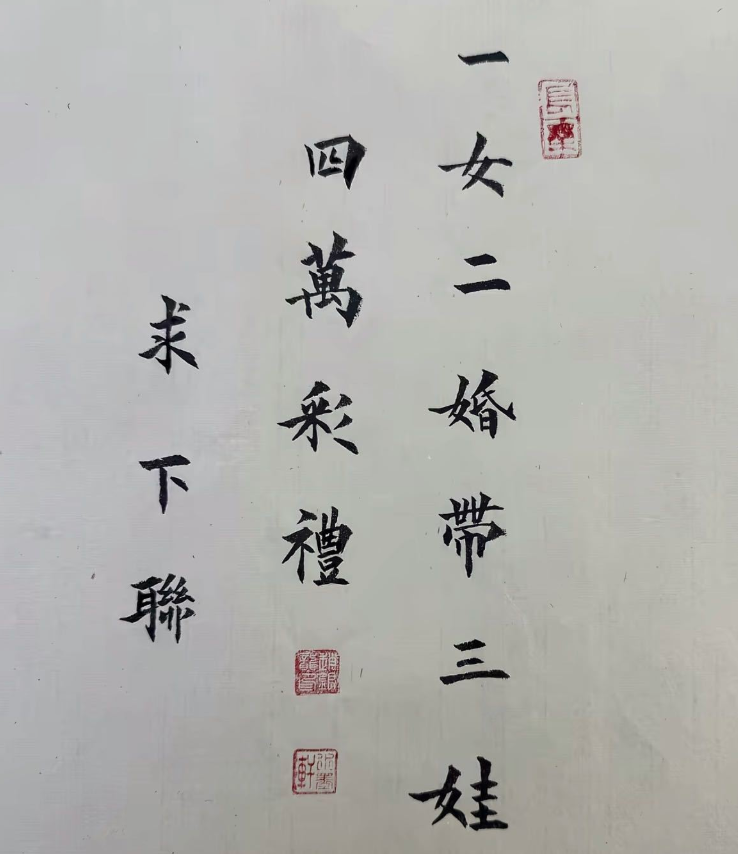 一女二婚帶三娃
四萬彩禮
求下聯